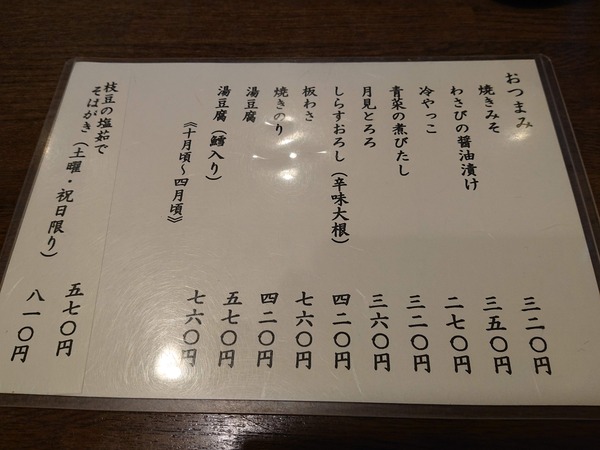 おつまみ
焼きみそ 三二〇円
わさびの醤油漬け 三五〇円
冷やっこ 二七〇円
青菜の煮びたし 三二〇円
月見とろろ 三六〇円
しらすおろし（辛味大根） 四二〇円
板わさ 七六〇円
焼きのり 四二〇円
湯豆腐 五七〇円
湯豆腐（鱈入り） 七六〇円
《十月頃～四月頃》
枝豆の塩茹で 五七〇円
そばがき（土曜・祝日限り） 八一〇円